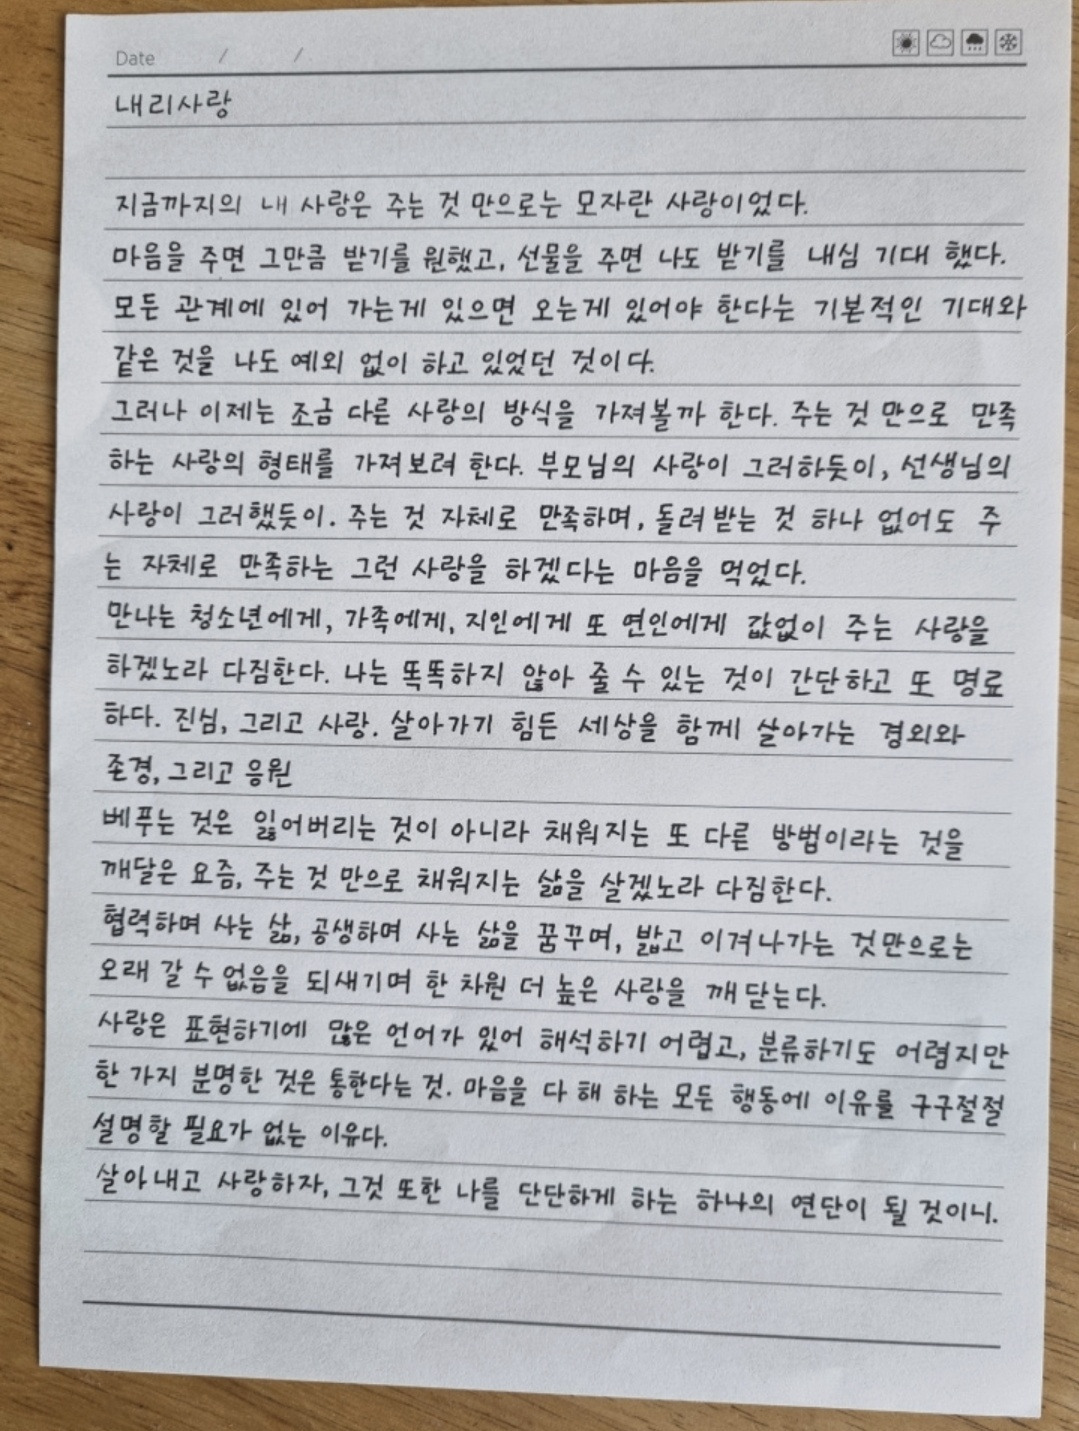 Date / /
내리사랑
지금까지의 내 사랑은 주는 것 만으로는 모자란 사랑이었다.
마음을 주면 그만큼 받기를 원했고, 선물을 주면 나도 받기를 내심 기대 했다.
모든 관계에 있어 가는게 있으면 오는게 있어야 한다는 기본적인 기대와
같은 것을 나도 예외 없이 하고 있었던 것이다.
그러나 이제는 조금 다른 사랑의 방식을 가져볼까 한다. 주는 것 만으로 만족
하는 사랑의 형태를 가져보려 한다. 부모님의 사랑이 그러하듯이, 선생님의
사랑이 그러했듯이. 주는 것 자체로 만족하며, 돌려받는 것 하나 없어도 주
는 자체로 만족하는 그런 사랑을 하겠다는 마음을 먹었다.
만나는 청소년에게, 가족에게, 지인에게 또 연인에게 값없이 주는 사랑을
하겠노라 다짐한다. 나는 똑똑하지 않아 줄 수 있는 것이 간단하고 또 명료
하다. 진심, 그리고 사랑. 살아가기 힘든 세상을 함께 살아가는 경외와
존경, 그리고 응원
베푸는 것은 잃어버리는 것이 아니라 채워지는 또 다른 방법이라는 것을
깨달은 요즘, 주는 것 만으로 채워지는 삶을 살겠노라 다짐한다.
협력하며 사는 삶, 공생하며 사는 삶을 꿈꾸며, 밟고 이겨나가는 것만으로는
오래 갈 수 없음을 되새기며 한 차원 더 높은 사랑을 깨닫는다.
사랑은 표현하기에 많은 언어가 있어 해석하기 어렵고, 분류하기도 어렵지만
한 가지 분명한 것은 통한다는 것. 마음을 다 해 하는 모든 행동에 이유를 구구절절
설명할 필요가 없는 이유다.
살아내고 사랑하자, 그것 또한 나를 단단하게 하는 하나의 연단이 될 것이니.